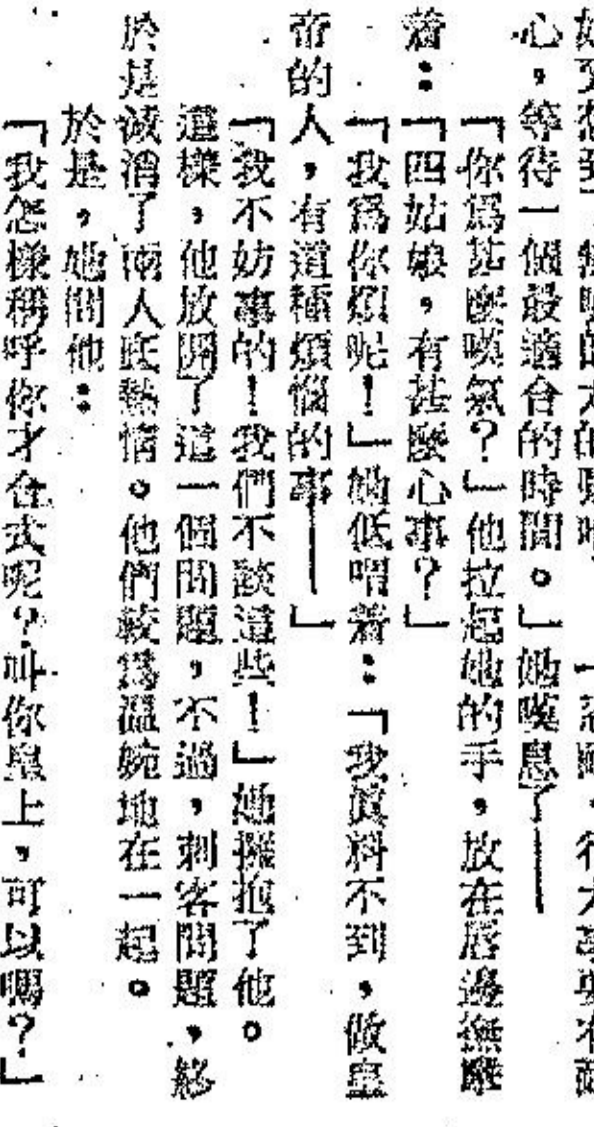 心，等待一個最適合的時間。」她嘆息了——
「你爲甚麼嘆氣？」他拉起她的手，放在唇邊撫摩
着：「四姑娘，有甚麼心事？」
「我爲你煩呢！」她低喟着：「我眞料不到，做皇
帝的人，有這種煩惱的事——」
「我不妨事的！我們不談這些！」她擁抱了他。
這樣，他放開了這一個問題，不過，刺客問題，終
於是減消了兩人底熱情。他們較爲溫婉地在一起。
於是，她問他：
「我怎樣稱呼你才合式呢？叫你皇上，可以嗎？」